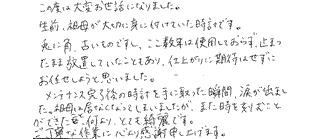 この度は大変お世話になりました。
生前、祖母が大切に身に付けていた時計です。
兎に角、古いものですし、ここ数年は使用しておらず、止まっ
たまま放置していたこともあり、仕上がりに期待はせずに
お任せしようと思いました。
メンテナンス完了後の時計を手に取った瞬間、涙が出まし
た。祖母は居なくなってしまいましたが、また時を刻むこと
ができた 何より、とても綺麗です。
ご丁寧な作業に心より感謝申し上げます。